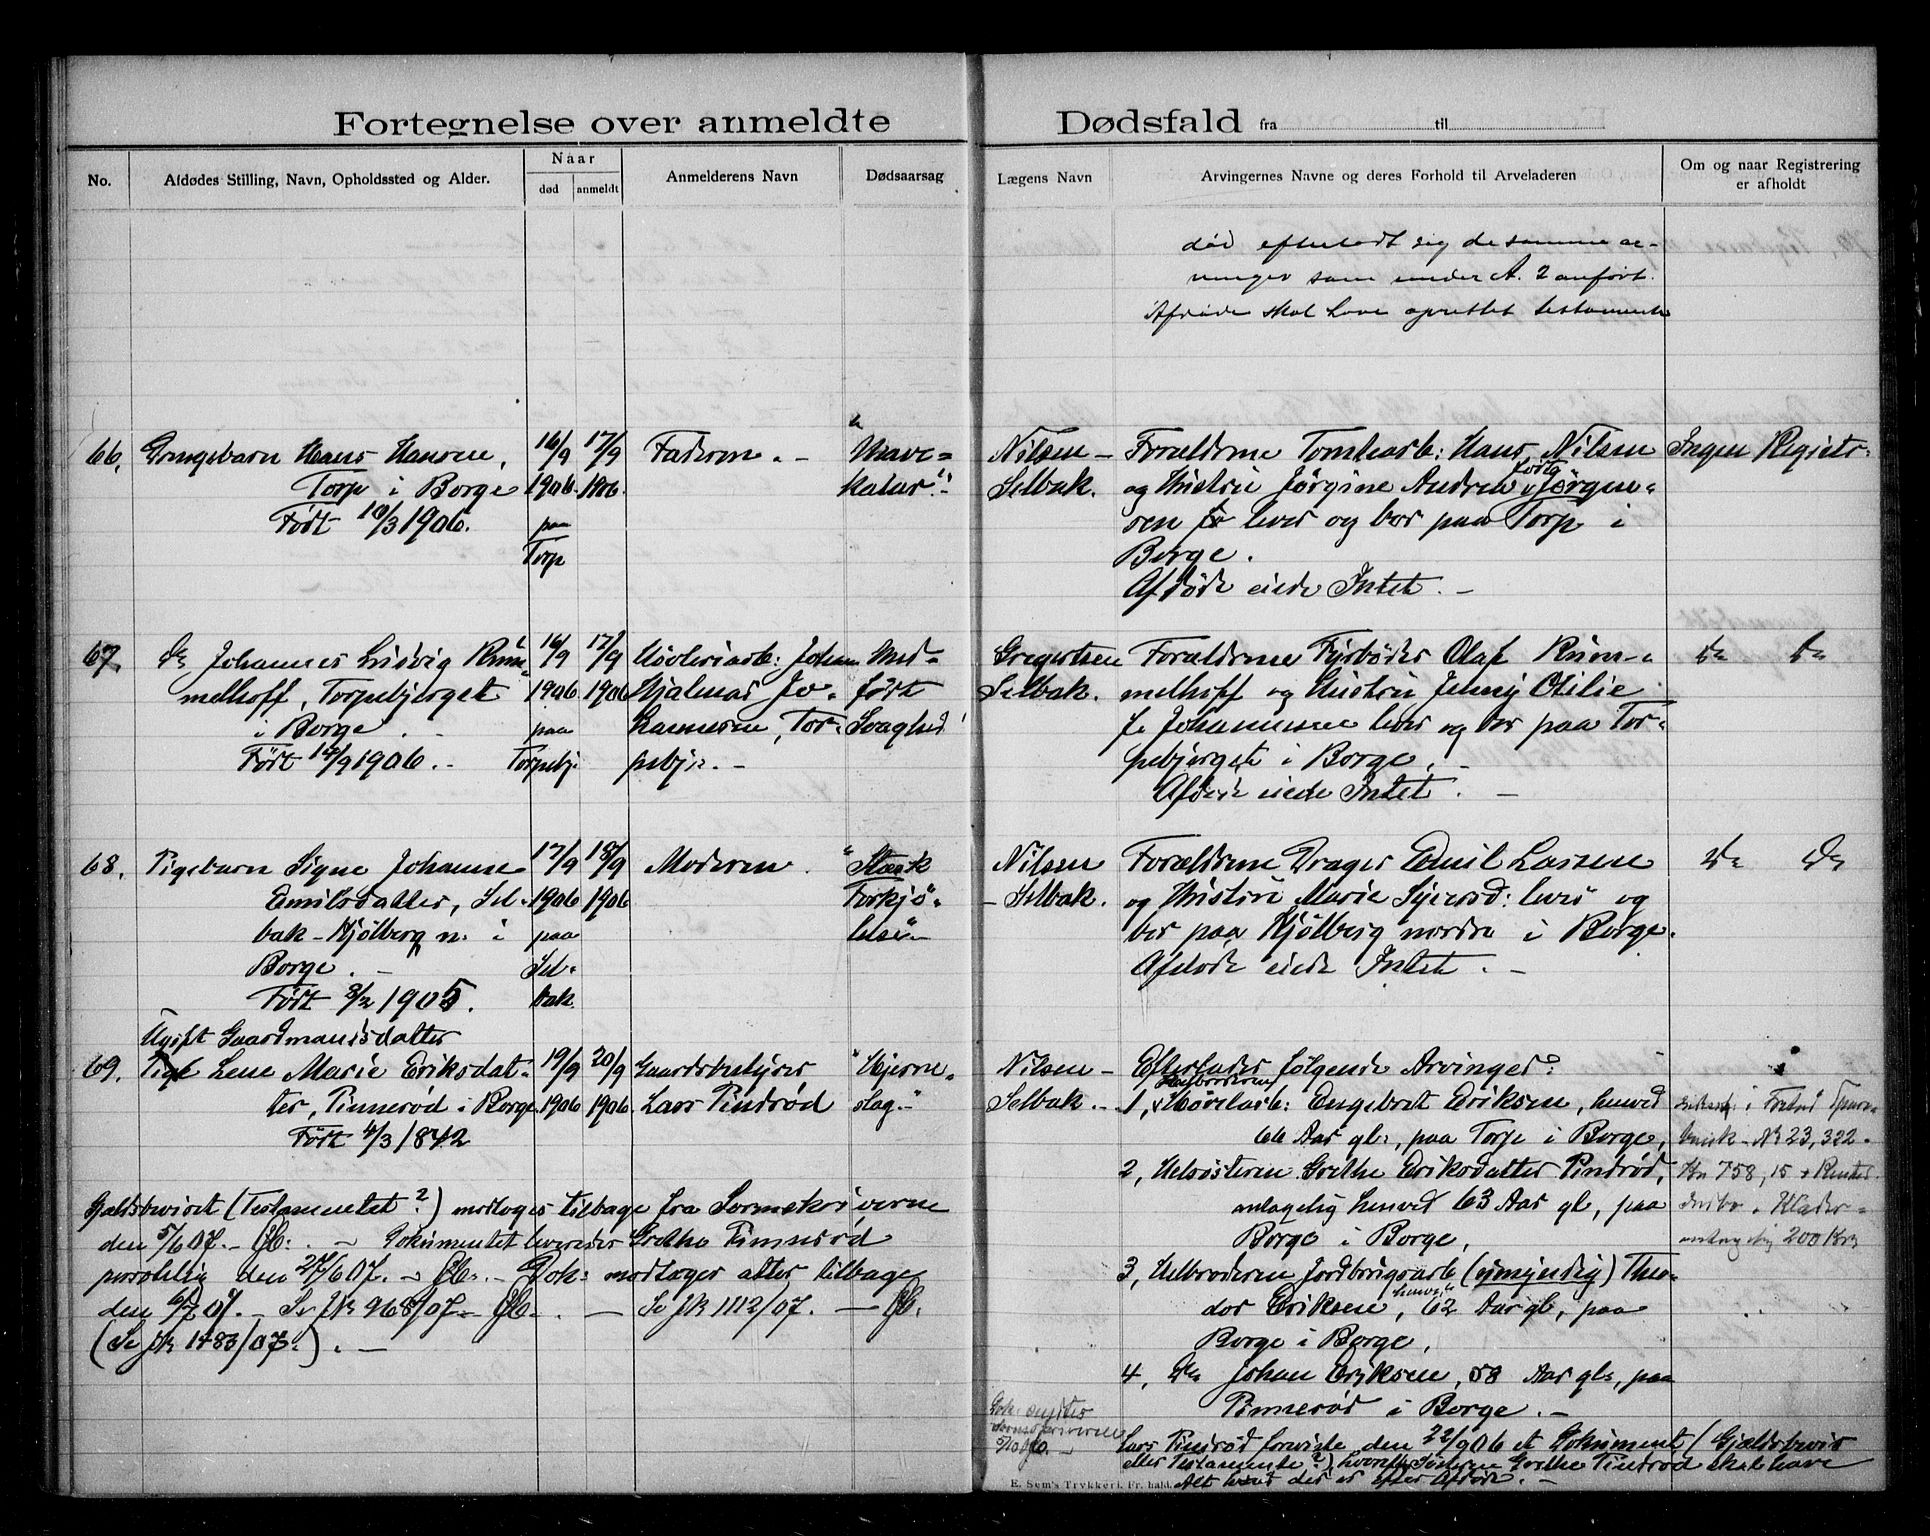 Fortegnelse over anmeldte
No.
Afdødes Stilling, Navn, Opholdssted og Alder.
Naar
død
anmeldt
Anmelderens Navn
Dødsaarsag
66,
Drengebarn Hans Hansen,
Torp i Borge
Født 10/3 1906.
16/9
1906.
paa
Torp
17/9
1906.
Faderen. -
"Mave=
katar".
67
Do Johannes Ludvig Rum=
melhoff, Torpebjerget
i Borge. -
Født 14/9 1906. -
16/9
1906
paa
Torpebj.
17/9
1906
Høvleriarb: Johan
Hjalmar Jo-
hannesen, Tor-
pebj:. -
Med-
født
Svaghed
68,
Pigebarn Signe Johanne
Emilsdatter, Sel-
bak - Kjølberg n. i
Borge. -
Født 8/2 1905.
17/9
1906
paa
Sel-
bak
18/9
1906
Moderen.
"Stærk
Forkjø-
lelse"
Ugift Gaardmandsdatter
69.
Pige Lene Marie Eriksdat-
ter, Pinnerød i Borge
Født 4/3 1842
19/9
1906
20/9
1906.
Gaardsbestyrer
Lars Pindrød
"Hjerne-
slag".
Gjældsbeviset (Testamentet?) modtoges tilbage fra Sorenskriveren
den 5/6 07. - - Dokumentet leveredes Grethe Pinnerød
personlig den 24/6 07. - - Dok: modtoges atter tilbage
den 6/7 07. - Se jk 968/07. - - Se jk 1112/07. -
(Se jk 1483/07.). -
Dødsfald fra til
Lægens Navn
Arvingernes Navne og deres Forhold til Arveladeren
Om og naar Registrering
er afholdt
død efterladt sig de samme ar-
vinger som under A. 2 anført.
Afdøde skal have oprettet testamente
Nilsen -
Selbak.
Forældrene Tomtearb: Hans Nilsen
og Hustru Jørgine Andrea Jørgen-
sen lever og bor paa Torp i
Borge.
Afdøde eiede Intet. -
Ingen Registr.
Gregertsen
Selbak.
Forældrene Fyrbøder Olaf Rum-
melhoff og Hustru Jenny Otilie
f. Johannesen lever og bor paa Tor-
pebjerget i Borge. -
Afdøde eiede Intet. -
Do Do
Nilsen
- Selbak.
Forældrene Drager Emil Larsen
og Hustru Marie Syversd: lever og
bor paa Kjølberg nordre i Borge.
Afdøde eiede Intet. -
Do Do
Nilsen -
Selbak. -
Efterlader følgende Arvinger:
Halvbroderen
1, Høvlearb: Engebret Eriksen, henved
66 Aar gl:, paa Torp i Borge,
2, Helsøsteren Grethe Eriksdatter Pindrød,
antagelig henved 63 Aar gl, paa
Borge i Borge,
3, Helbroderen Jordbrugsarb (umyndig) Theo-
dor Eriksen, henved 62 Aar gl, paa
Borge i Borge,
4, Do Johan Eriksen, 58 Aar gl:, paa
Pinnerød i Borge. -
Lars Pindrød foreviste den 22/9 06 et Dokument (Gjældsbevis
eller Testamente?), hvorefter Søsteren Grethe Pindrød skal have
Alt hvad der er efter Afdøde. -
i Fr.stad Spare-
bank - No 23,322 -
Kr 758,15 + Renter
Indbo, Klæder -
antagelig 200 Kr
Dok: sendtes
Sorenskriveren
E. Sem's Trykkeri, Fr. hald.